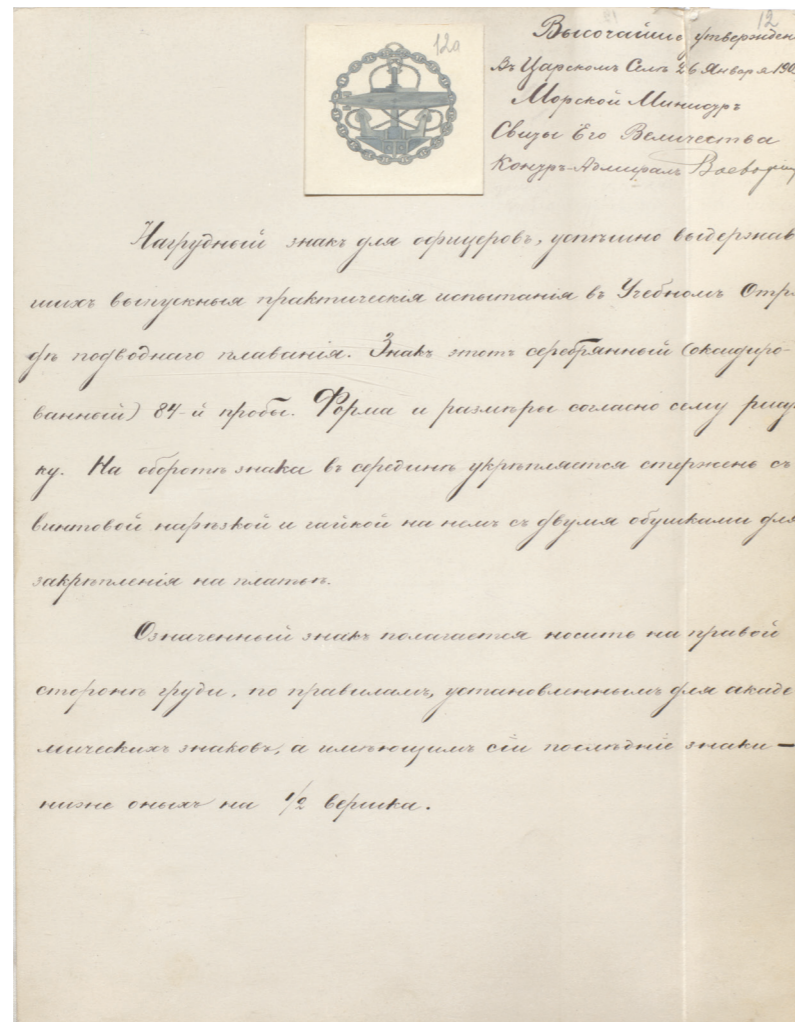 12
12а
Высочайше утвержден
Въ Царскомъ Селѣ 26 Января 190
Морской Министръ
Свиты Его Величества
Контръ-Адмиралъ Воеводскій
Нагрудный знакъ для офицеровъ, успѣшно выдержав
шихъ выпускныя практическія испытанія въ Учебномъ Отря
дѣ подводнаго плаванія. Знакъ этотъ серебрянный (оксидиро-
ванный) 84-й пробы. Форма и размѣры согласно сему рисун
ку. На оборотѣ знака въ серединѣ укрѣпляется стержень съ
винтовой нарѣзкой и гайкой на немъ съ двумя обушками для
закрѣпленія на платьѣ.
Означенный знакъ полагается носить на правой
сторонѣ груди, по правиламъ, установленнымъ для акаде
мическихъ знаковъ, а имѣющимъ сіи послѣдніе знаки —
ниже оныхъ на 1/2 вершка.